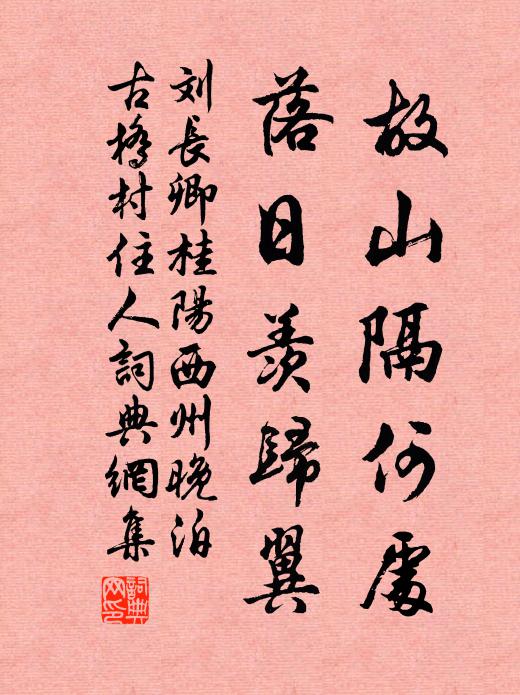 故山隔何處
落日羨歸翼
刘長卿桂陽西州晚泊
古橋村住人詞典網集
詞典網印